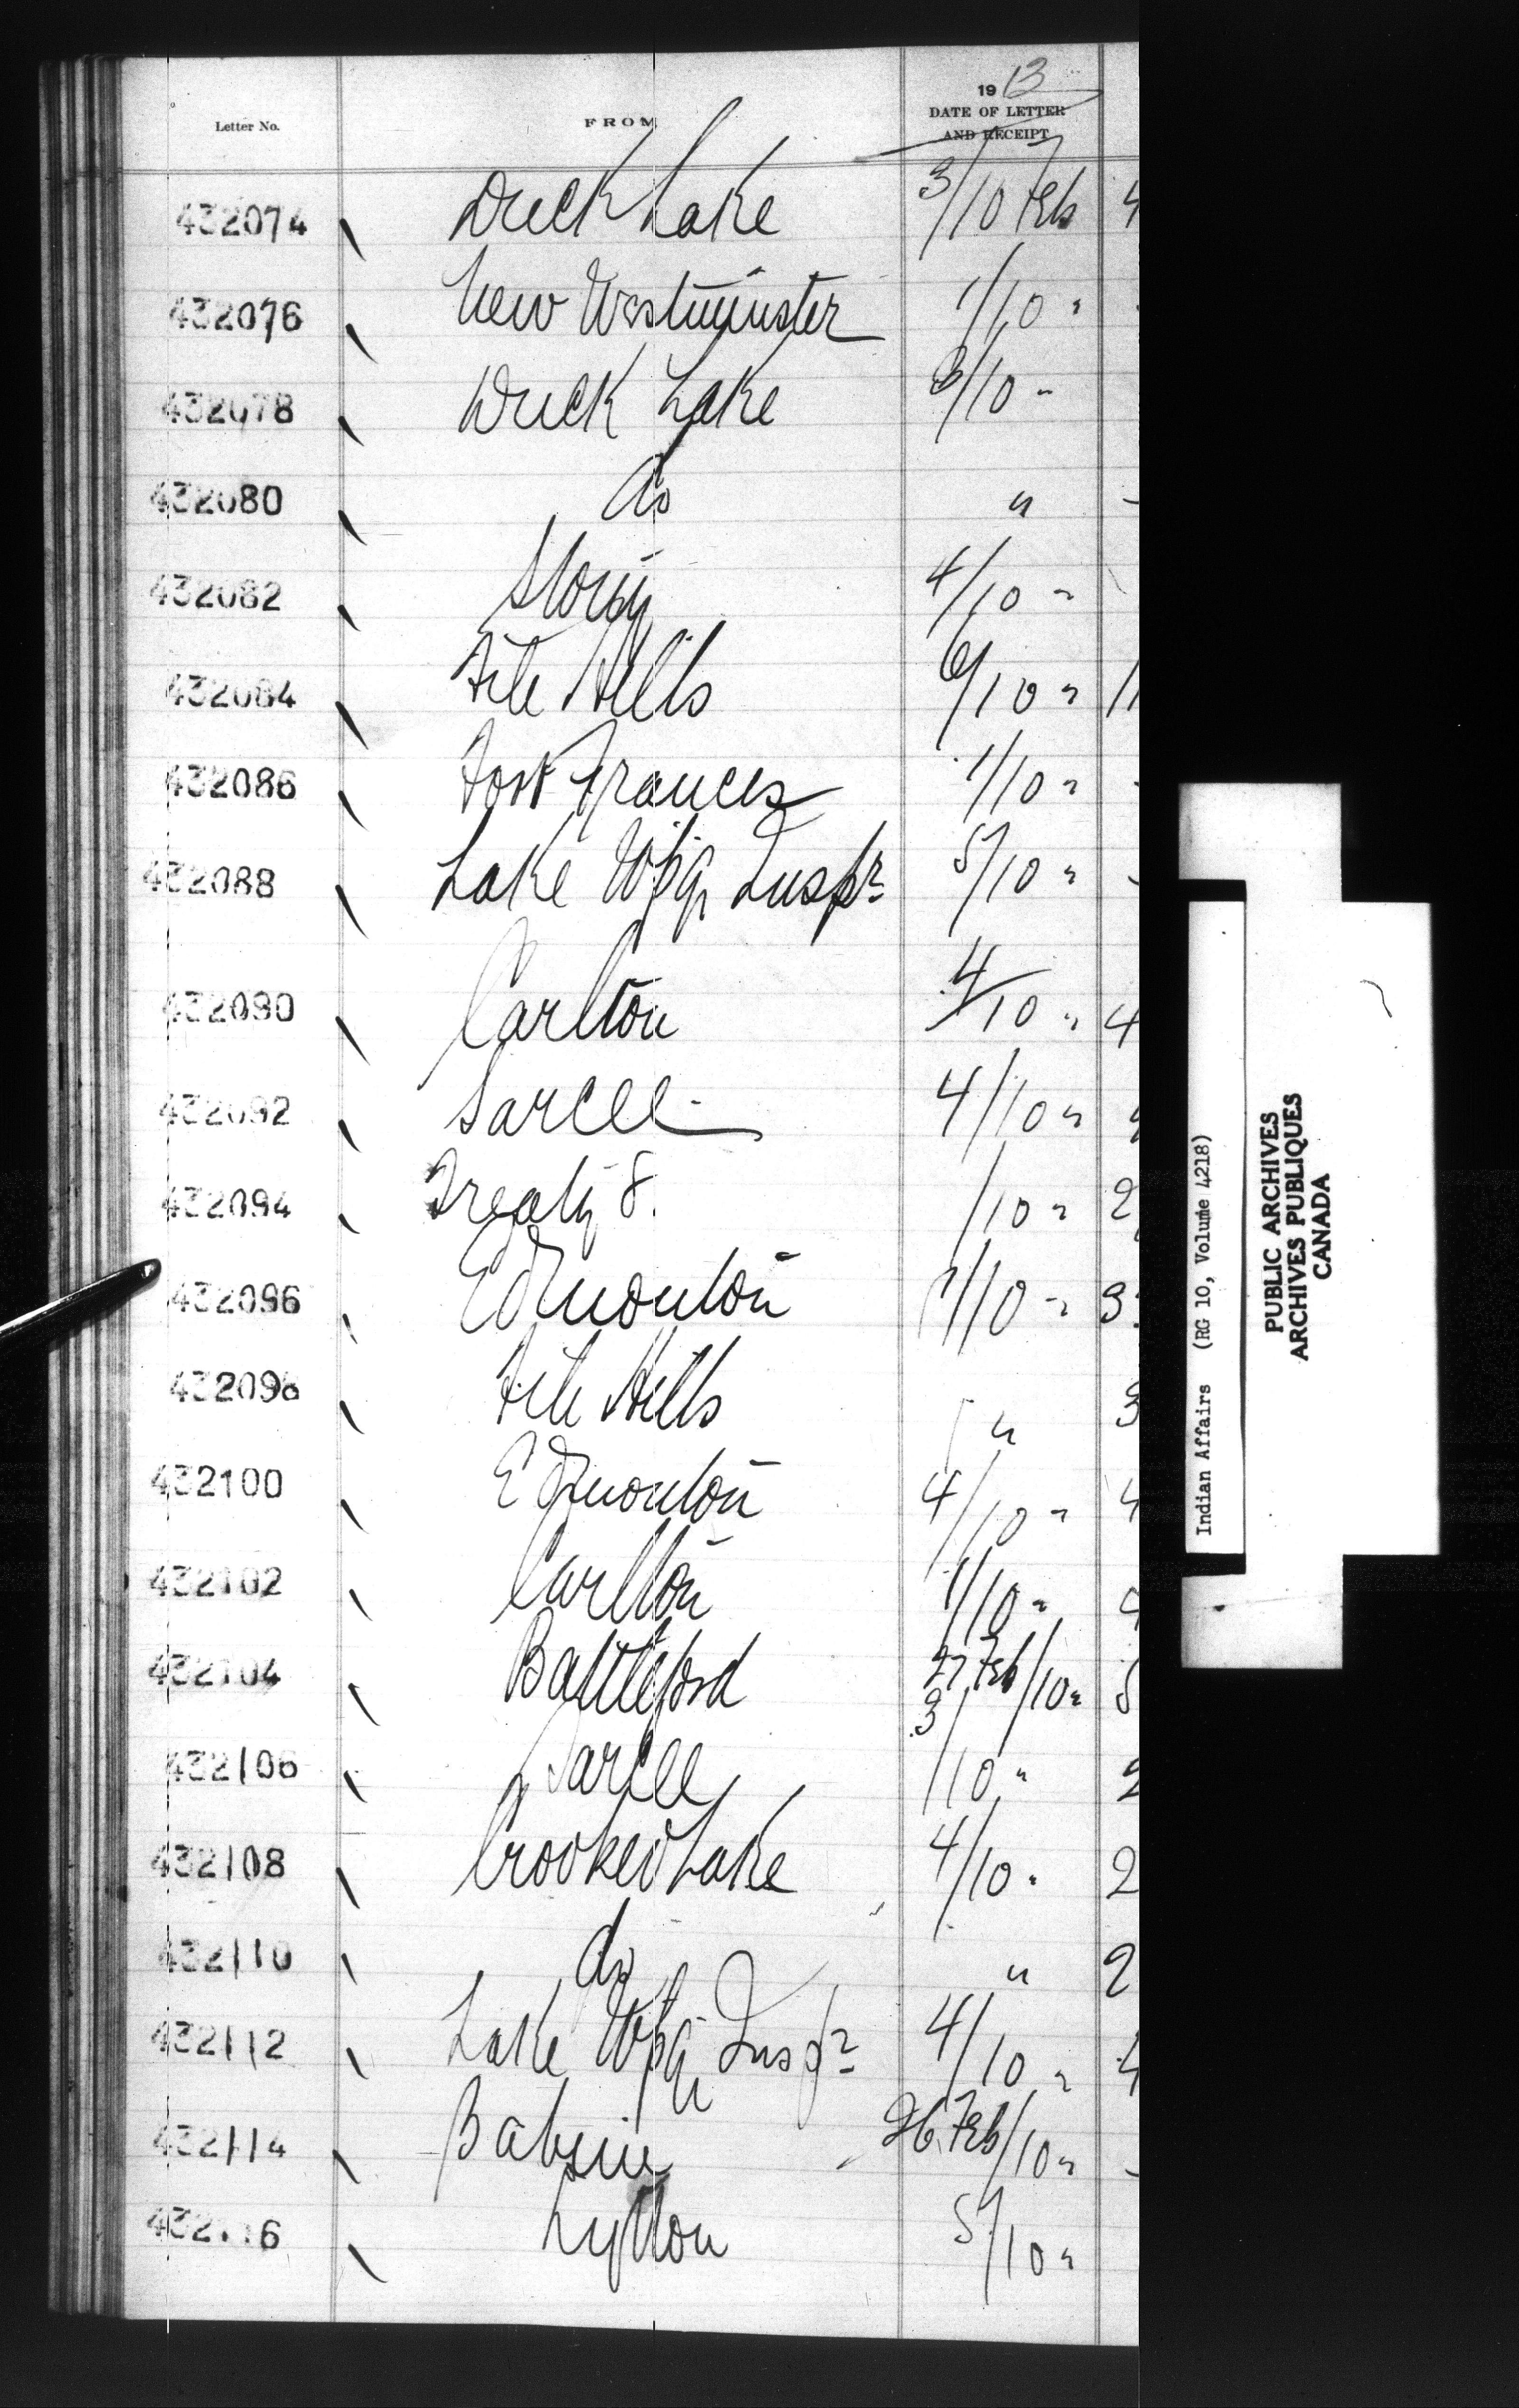 1913
Letter No. FROM DATE OF LETTER
AND RECEIPT
432074 Duck Lake 3/10 Feb 4
432076 New Westminster 1/10 "
432078 Duck Lake 3/10 "
432080 do "
432082 Stony 4/10 "
432084 File Hills 6/10 " 11
432086 Fort Frances 1/10 "
432088 Lake Wpg Inspr 5/10 "
432090 Carlton 4/10 " 4
432092 Sarcee 4/10 "
432094 Treaty 8. /10 " 2
432096 Edmonton 1/10 " 3
432098 File Hills " 3
432100 Edmonton 4/10 " 4
432102 Carlton 1/10 "
432104 Battleford 27 Feb/10 "
432106 Sarcee 3/10 " 2
432108 Crooked Lake 4/10 " 2
432110 do " 2
432112 Lake Wpg Inspr 4/10 " 4
432114 Babine 26 Feb/10 "
432116 Lytton 5/10 "
Indian Affairs (RG 10, Volume 4218)
PUBLIC ARCHIVES
ARCHIVES PUBLIQUES
CANADA